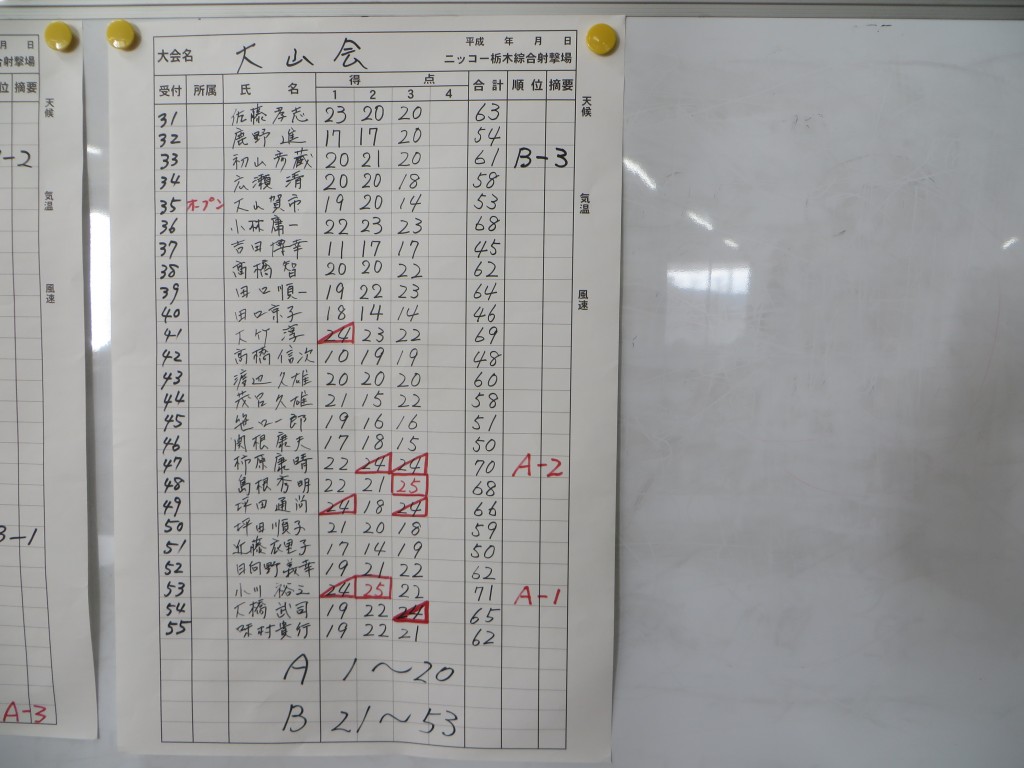 月 日
合射撃場
位 摘要
天候
B-2
気温
風速
B-1
A-3
平成 年 月 日
大会名 大山会 ニッコー栃木綜合射撃場
受付 所属 氏名 得点 合計 順位 摘要
1 2 3 4
天候
気温
風速
31 佐藤孝志 23 20 20 63
32 鹿野進 17 17 20 54
33 初山彦蔵 20 21 20 61 B-3
34 広瀬清 20 20 18 58
35 オープン 大山賀市 19 20 14 53
36 小林庸一 22 23 23 68
37 吉田博幸 11 17 17 45
38 高橋智 20 20 22 62
39 田口順一 19 22 23 64
40 田口京子 18 14 14 46
41 大竹淳 24 23 22 69
42 高橋信次 10 19 19 48
43 渡辺久雄 20 20 20 60
44 茂呂久雄 21 15 22 58
45 口一郎 19 16 16 51
46 関根康夫 17 18 15 50
47 柿原康晴 22 24 24 70 A-2
48 島根秀明 22 21 25 68
49 坪田通尚 24 18 24 66
50 坪田順子 21 20 18 59
51 近藤衣里子 17 14 19 50
52 日向野義幸 19 21 22 62
53 小川裕之 24 25 22 71 A-1
54 大橋武司 19 22 24 65
55 味村貴行 19 22 21 62
A 1〜20
B 21〜53